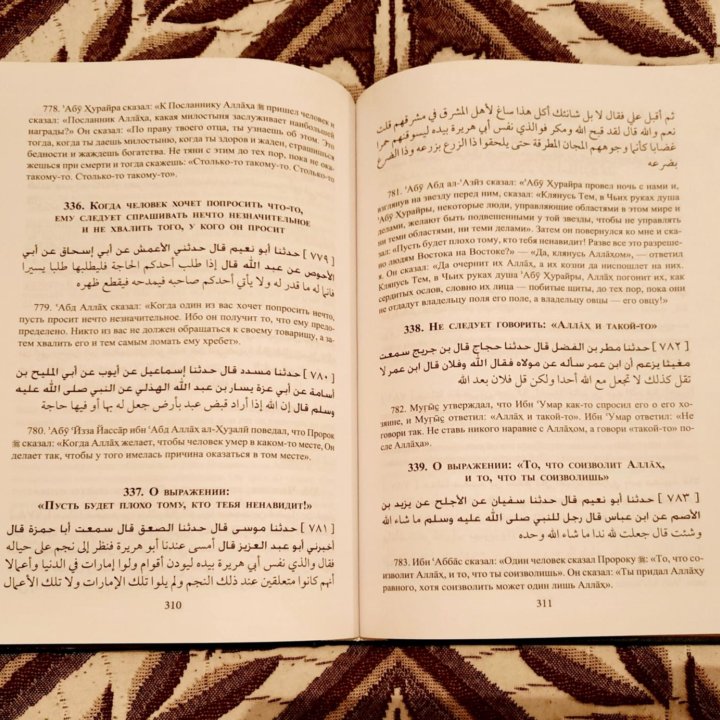 778. ’Абӯ Ҳурайра сказал: «К Посланнику Аллāха ﷺ пришел человек и
сказал: «Посланник Аллāха, какая милостыня заслуживает наибольшей
награды?» Он сказал: «По праву твоего отца, ты узнаешь об этом. Это
тогда, когда ты даешь милостыню, когда ты здоров и жаден, страшишься
бедности и жаждешь богатства. Не тяни с этим до тех пор, пока не ока-
жешься при смерти и тогда скажешь: «Столько-то такому-то. Столько-то
такому-то. Столько-то такому-то».
336. Когда человек хочет попросить что-то,
ему следует спрашивать нечто незначительное
и не хвалить того, у кого он просит
[ ٧٧٩ ] حدثنا أبو نعيم قال حدثني الأعمش عن أبي إسحاق عن أبي
الأحوص عن عبد الله قال إذا طلب أحدكم الحاجة فليطلبها طلبا يسيرا
فإنما له ما قدر له ولا يأتي أحدكم صاحبه فيمدحه فيقطع ظهره
779. ‘Абд Аллāх сказал: «Когда один из вас хочет попросить нечто,
пусть просит нечто незначительное. Ибо он получит то, что ему предо-
пределено. Никто из вас не должен обращаться к своему товарищу, а за-
тем хвалить его и тем самым ломать ему хребет».
[ ٧٨٠ ] حدثنا مسدد قال حدثنا إسماعيل عن أيوب عن أبي المليح بن
أسامة عن أبي عزة يسار بن عبد الله الهذلي عن النبي صلى الله عليه
وسلم قال إن الله إذا أراد قبض عبد بأرض جعل له بها أو فيها حاجة
780. ’Абӯ ‘Йзза Йассāр ибн ‘Абд Аллāх ал-Ҳуҙалӣ поведал, что Пророк
ﷺ сказал: «Когда Аллāх желает, чтобы человек умер в каком-то месте, Он
делает так, чтобы у того имелась причина оказаться в том месте».
337. О выражении:
«Пусть будет плохо тому, кто тебя ненавидит!»
[ ٧٨١ ] حدثنا موسى قال حدثنا الصعق قال سمعت أبا حمزة قال
أخبرني أبو عبد العزيز قال أمسى عندنا أبو هريرة فنظر إلى نجم على حياله
فقال والذي نفس أبي هريرة بيده ليودن أقوام ولوا إمارات في الدنيا وأعمالا
أنهم كانوا متعلقين عند ذلك النجم ولم يلوا تلك الإمارات ولا تلك الأعمال
310
ثم أقبل علي فقال لا بل شانئك أكل هذا ساغ لأهل المشرق في مشرقهم قلت
نعم والله قال لقد قبح الله ومكر فوالذي نفس أبي هريرة بيده ليسوقنهم حمرا
غضابا كأنما وجوههم المجان المطرقة حتى يلحقوا ذا الزرع بزرعه وذا الضرع
بضرعه
781. ’Абӯ ‘Абд ал-‘Азӣз сказал: «’Абӯ Ҳурайра провел ночь с нами и,
взглянув на звезду перед ним, сказал: «Клянусь Тем, в Чьих руках душа
’Абӯ Ҳурайры, некоторые люди, управляющие областями в этом мире и
делами, желают быть подвешенными у той звезды, чтобы не управлять
теми областями, ни теми делами». Затем он повернулся ко мне и ска-
зал: «Пусть будет плохо тому, кто тебя ненавидит! Разве все это разреше-
но людям Востока на Востоке?» — «Да, клянусь Аллāхом», — ответил
я. Он сказал: «Да очернит их Аллāх, а их козни да ниспошлет на них.
Клянусь Тем, в Чьих руках душа ’Абӯ Ҳурайры, Аллāх погонит их, как
сердитых ослов, словно их лица — побитые щиты, до тех пор, пока они
не отдадут владельцу поля его поле, а владельцу овцы — его овцу!»
338. Не следует говорить: «Аллāх и такой-то»
[ ٧٨٢ ] حدثنا مطر بن الفضل قال حدثنا حجاج قال بن جريج سمعت
مغيثا يزعم أن ابن عمر سأله عن مولاه فقال الله وفلان قال ابن عمر لا
تقل كذلك لا تجعل مع الله أحدا ولكن قل فلان بعد الله
782. Муғӣҫ утверждал, что Ибн ‘Умар как-то спросил его о его хо-
зяине, и Муғӣҫ ответил: «Аллāх и такой-то». Ибн ‘Умар ответил: «Не
говори так. Не ставь никого наравне с Аллāхом, а говори «такой-то» по-
сле Аллāха».
339. О выражении: «То, что соизволит Аллāх,
и то, что ты соизволишь»
[ ٧٨٣ ] حدثنا أبو نعيم قال حدثنا سفيان عن الأجلح عن يزيد بن
الأصم عن ابن عباس قال رجل للنبي صلى الله عليه وسلم ما شاء الله
وشئت قال جعلت لله ندا ما شاء الله وحده
783. Ибн ‘Аббāс сказал: «Один человек сказал Пророку ﷺ: «То, что со-
изволит Аллāх, и то, что ты соизволишь». Он сказал: «Ты придал Аллāху
равного, хотя соизволить может один лишь Аллāх».
311